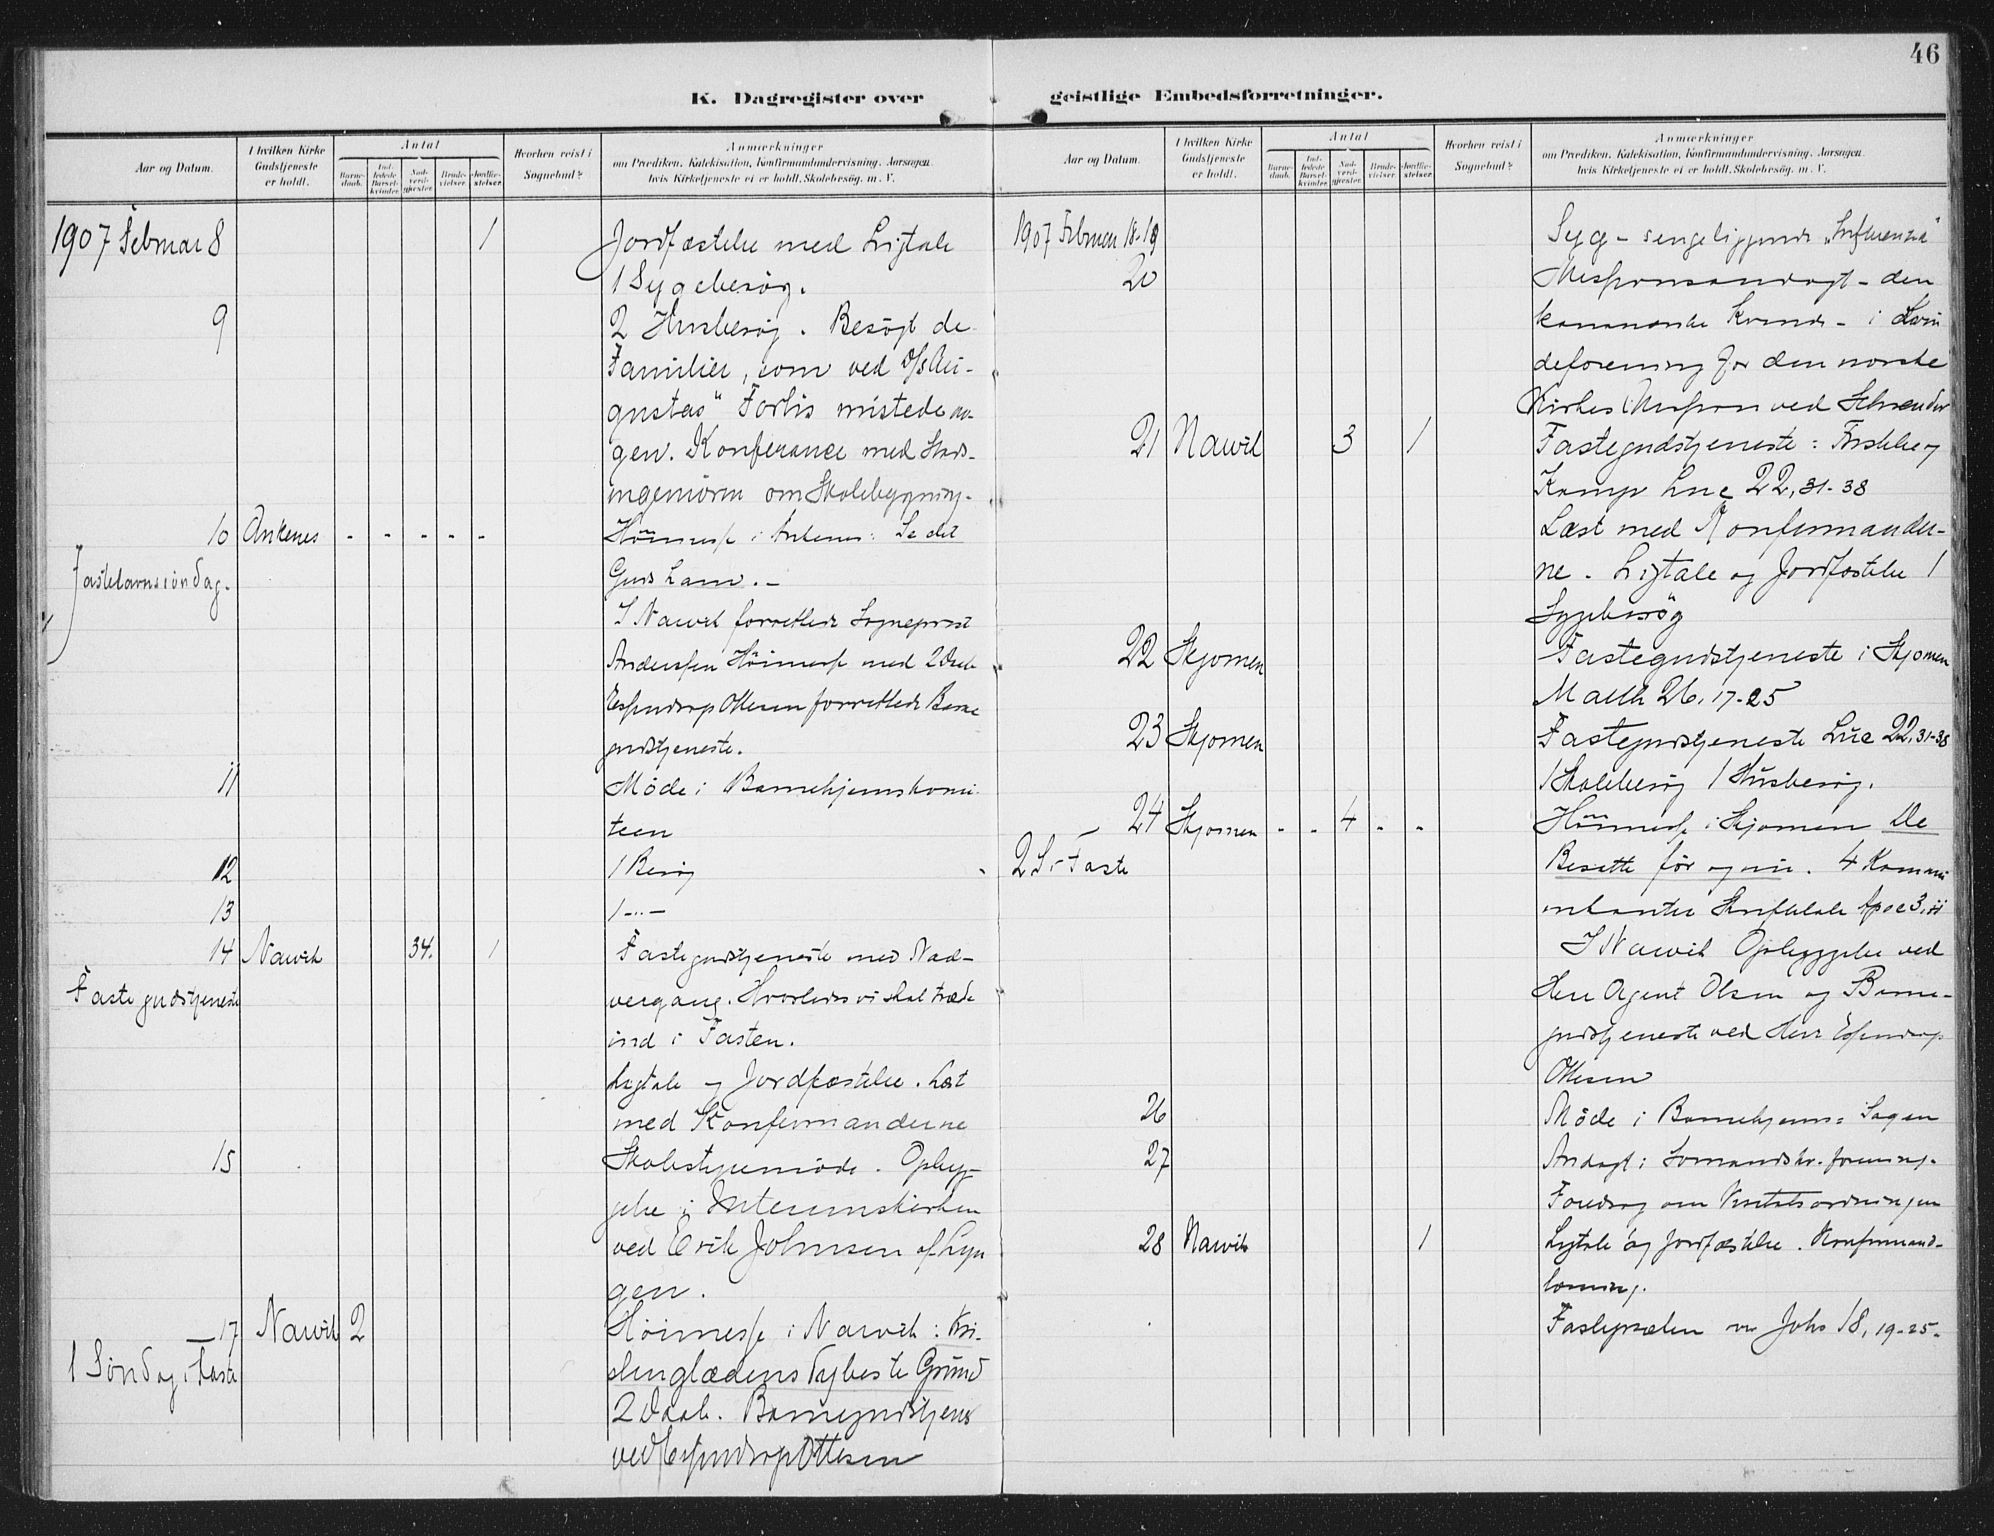 46
K. Dagregister over geistlige Embedsforretninger.
Aar og Datum.
I hvilken Kirke Gudstjeneste er holdt.
Antal
Barne-daab.
Ind-ledede Barsel-kvinder.
Nad-verd-gjester.
Brude-vielser.
Jordfæ-stelser.
Hvorhen reist i Sognebud?
Anmærkninger
om Prædiken, Katekisation, Konfirmandundervisning, Aarsagen,
hvis Kirketjeneste ei er holdt, Skolebesög, m. V.
1907 Februar 8 1 Jordfæstelse med Ligtale
1 Sygebesøg.
9 2 Husbesøg. Besøgt de
Familier, som ved
gustas" Forlis mistede no-
gen. Konferance med Stads-
ingeniøren om Skolebygning.
10 Ankenes - - - - - Høimesse i Ankenes: Se det
Fastelavnssöndag.
Guds Lam. -
I Narvik forrettede Sogneprest
Anderssen Høimesse med 2 Daab
Ottesen forrettede Barne
gudstjeneste.
11 Møde i Barnehjemskomi
teen
12 1 Besøg
13 1 -"-
14 Narvik 34. 1 Fastegudstjeneste med Nad-
Fastegudstjeneste
vergang. Hvorledes vi skal træde
ind i Fasten.
Ligtale og Jordfæstelse. Læst
med Konfirmanderne
15 Skolestyremøde. Opbyg-
gelse i Interimskirken
ved Erik Johnsen af Lyn
gen.
17 Narvik 2 Høimesse i Narvik: Kri-
1 Söndag i Faste
stenglædens dybeste Grund
2 Daab. Barnegudstjenes
ved Ottesen
Aar og Datum.
I hvilken Kirke Gudstjeneste er holdt.
Antal
Barne-daab.
Ind-ledede Barsel-kvinder.
Nad-verd-gjester.
Brude-vielser.
Jordfæ-stelser.
Hvorhen reist i Sognebud?
Anmærkninger
om Prædiken, Katekisation, Konfirmandundervisning, Aarsagen,
hvis Kirketjeneste ei er holdt, Skolebesög, m. V.
1907 Februar 18-19 Syg - sengeliggende "Influenza"
20 Missionsandagt - den
kananæiske Kvinde - i Kvin
deforening for den norske
Kirkes Mission ved Schreuder
21 Narvik 3 1 Fastegudstjeneste: Fristelse og
Kamp Luc 22, 31-38
Læst med Konfirmander-
ne. Ligtale og Jordfæstelse 1
Sygebesøg
22 Skjomen Fastegudstjeneste i Skjomen
Matth 26, 17-25
23 Skjomen Fastegudstjeneste Luc 22, 31-38
1 Skolebesøg 1 Husbesøg.
24 Skjomen - - 4 - - Høimesse i Skjomen De
2 S. i Faste
Besatte før og nu. 4 Kommu
nikanter Skriftetale Apoc 3, 11
I Narvik Opbyggelse ved
Herr Agent Olsen og Barne-
gudstjeneste ved Herr
Ottesen
26 Møde i Barnehjems= Sagen
27 Andagt i Sømandskv. forening.
Foredrag om
28 Narvik 1 Ligtale og Jordfæstelse. Konfirmand-
læsning.
Johs 18, 19-25.